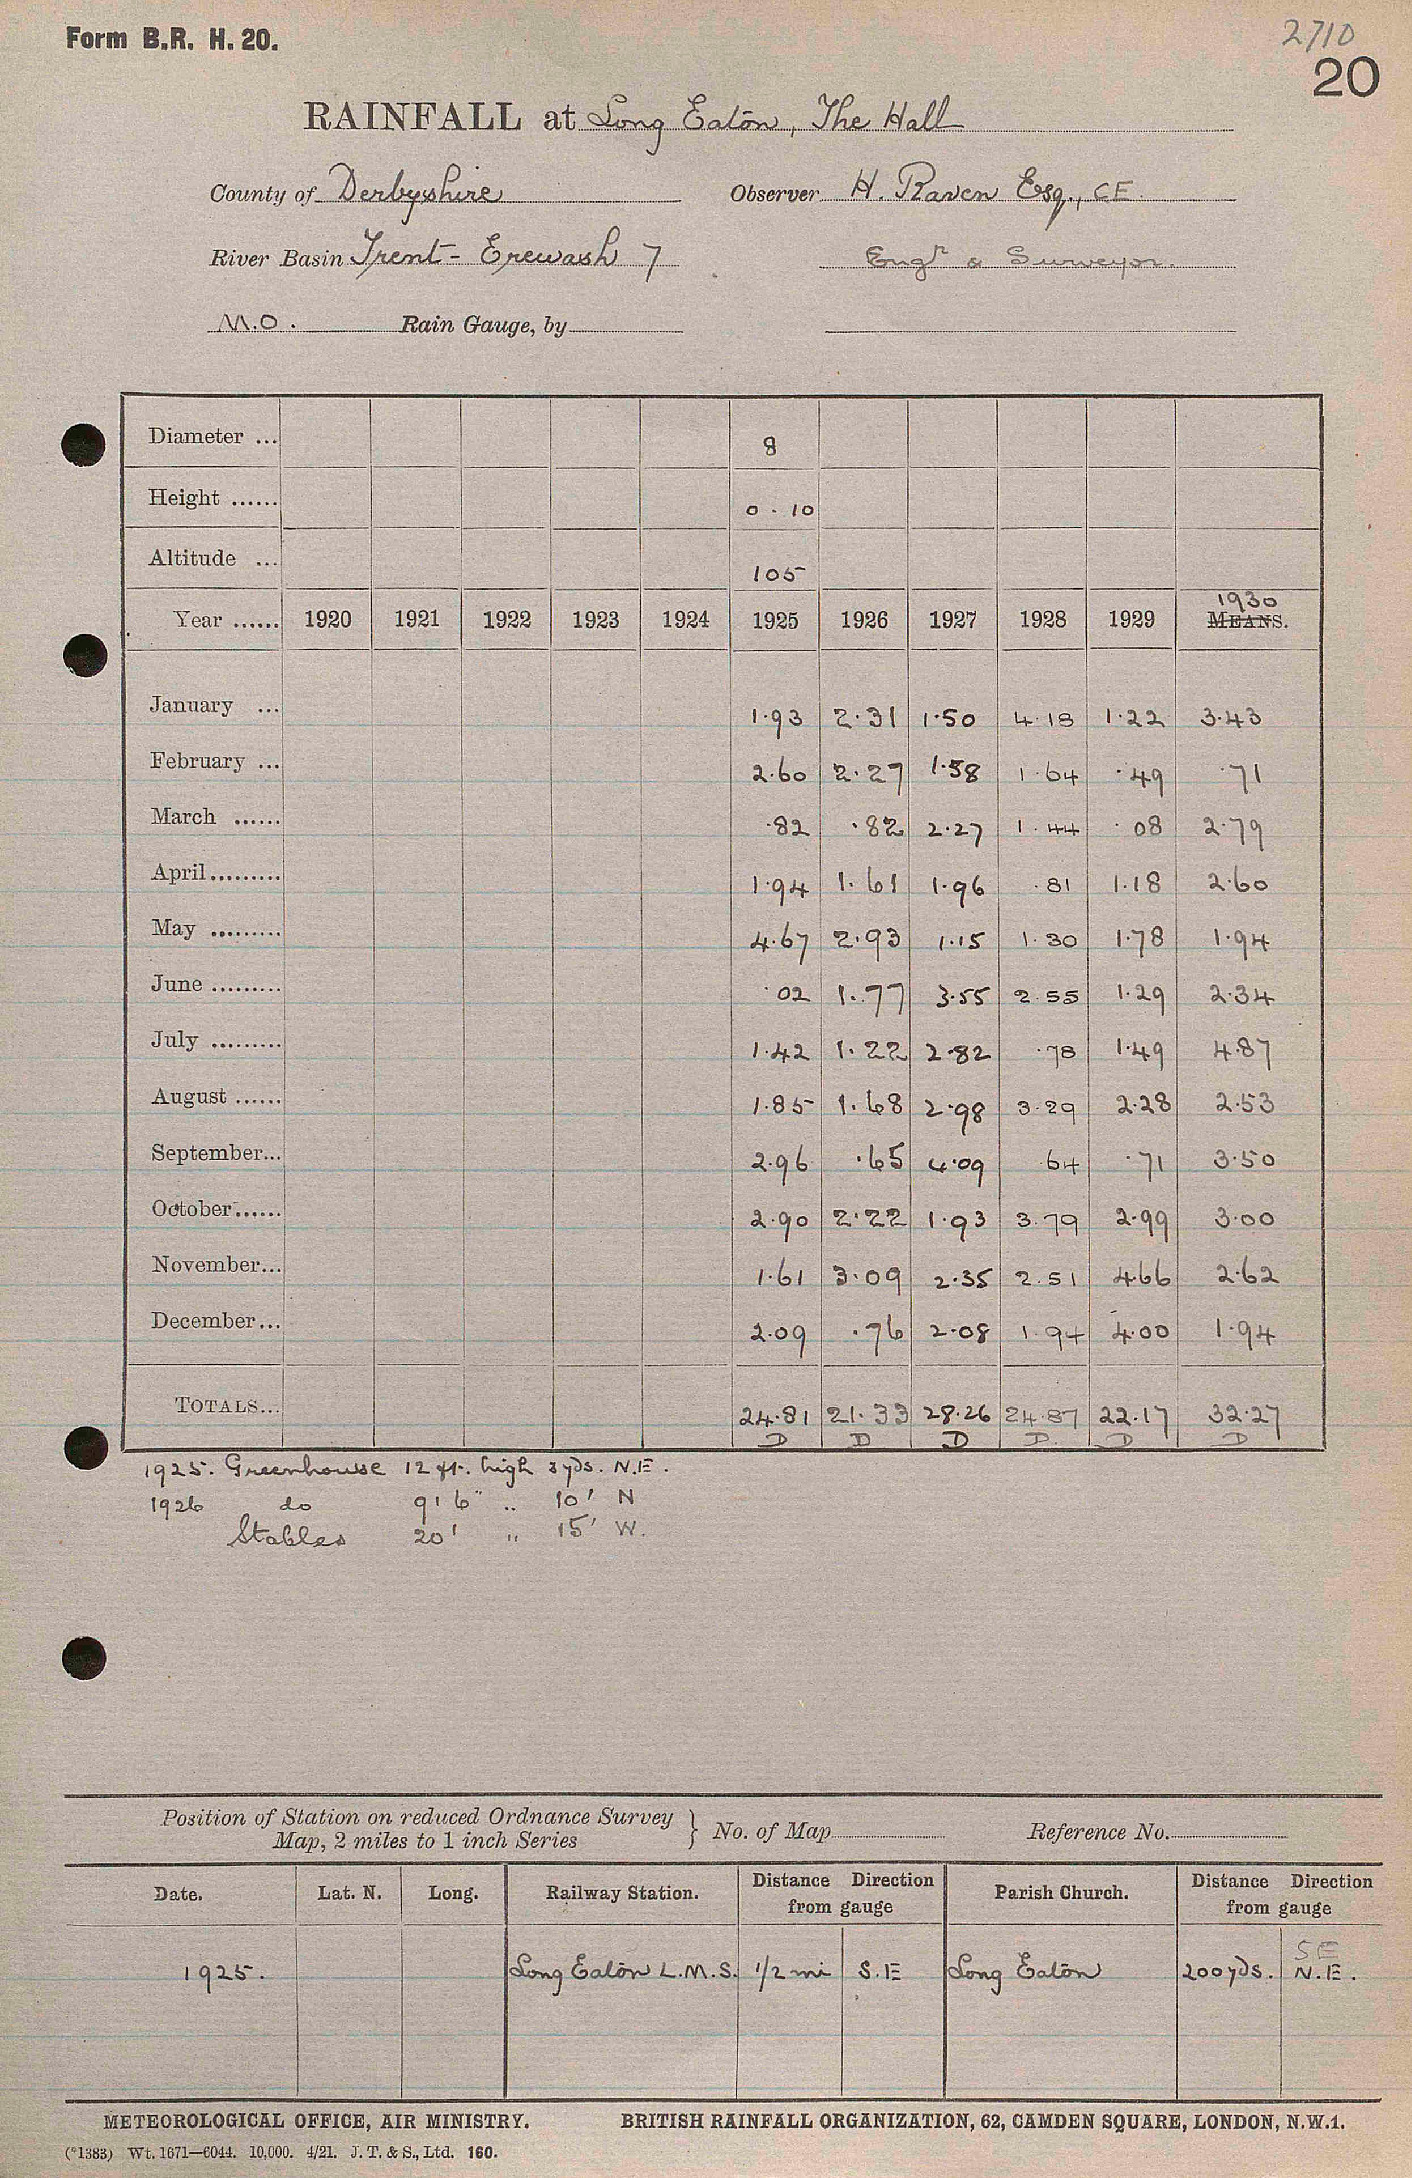 Form B.R. H. 20.
2710
20
RAINFALL at Long Eaton, The Hall
County of Derbyshire Observer H. Raven Esq., CE
River Basin Trent - Erewash 7 Engr & Surveyor.
M.O. Rain Gauge, by
Diameter ... 8
Height ...... 0 - 10
Altitude ... 105
1930
Year ...... 1920 1921 1922 1923 1924 1925 1926 1927 1928 1929 MEANS.
January ... 1.93 2.31 1.50 4.18 1.22 3.43
February ... 2.60 2.27 1.58 1.64 .49 .71
March ...... .82 .82 2.27 1.44 .08 2.79
April......... 1.94 1.61 1.96 .81 1.18 2.60
May ......... 4.67 2.93 1.15 1.30 1.78 1.94
June ......... .02 1.77 3.55 2.55 1.29 2.34
July ......... 1.42 1.22 2.82 .78 1.49 4.87
August ...... 1.85 1.68 2.98 3.29 2.28 2.53
September... 2.96 .65 4.09 .64 .71 3.50
October...... 2.90 2.22 1.93 3.79 2.99 3.00
November... 1.61 3.09 2.35 2.51 4.66 2.62
December... 2.09 .76 2.08 1.94 4.00 1.94
TOTALS... 24.81 21.33 28.26 24.87 22.17 32.27
D D D D D D
1925. Greenhouse 12 ft. high 3 yds. N.E.
1926 do 9' 6" " 10' N
Stables 20' " 15' W.
Position of Station on reduced Ordnance Survey
Map, 2 miles to 1 inch Series } No. of Map Reference No.
Date. Lat. N. Long. Railway Station. Distance Direction from gauge Parish Church. Distance Direction from gauge
SE
1925. Long Eaton L.M.S. 1/2 mi S.E Long Eaton 200 yds. N.E.
METEOROLOGICAL OFFICE, AIR MINISTRY. BRITISH RAINFALL ORGANIZATION, 62, CAMDEN SQUARE, LONDON, N.W.1.
(*1383) Wt. 1671—6044. 10,000. 4/21. J. T. & S., Ltd. 160.